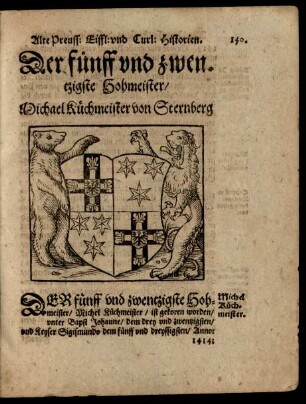 Alte Preuss: Eiffl: vnd Curl: Historien. 140.
Der fünff vnd zwen,
tzigste Hohmeister/
Michael Küchmeister von Sternberg
DER fünff vnd zwentzigste Hoh-
meister/ Michel Küchmeister/ ist gekoren worden/
vnter Bapst Johanne/ dem drey vnd zwentzigsten/
vnd Keyser Sigismundo dem fünff vnd dreyssigsten/ Anno
1414:
Michel
Küch-
meister.